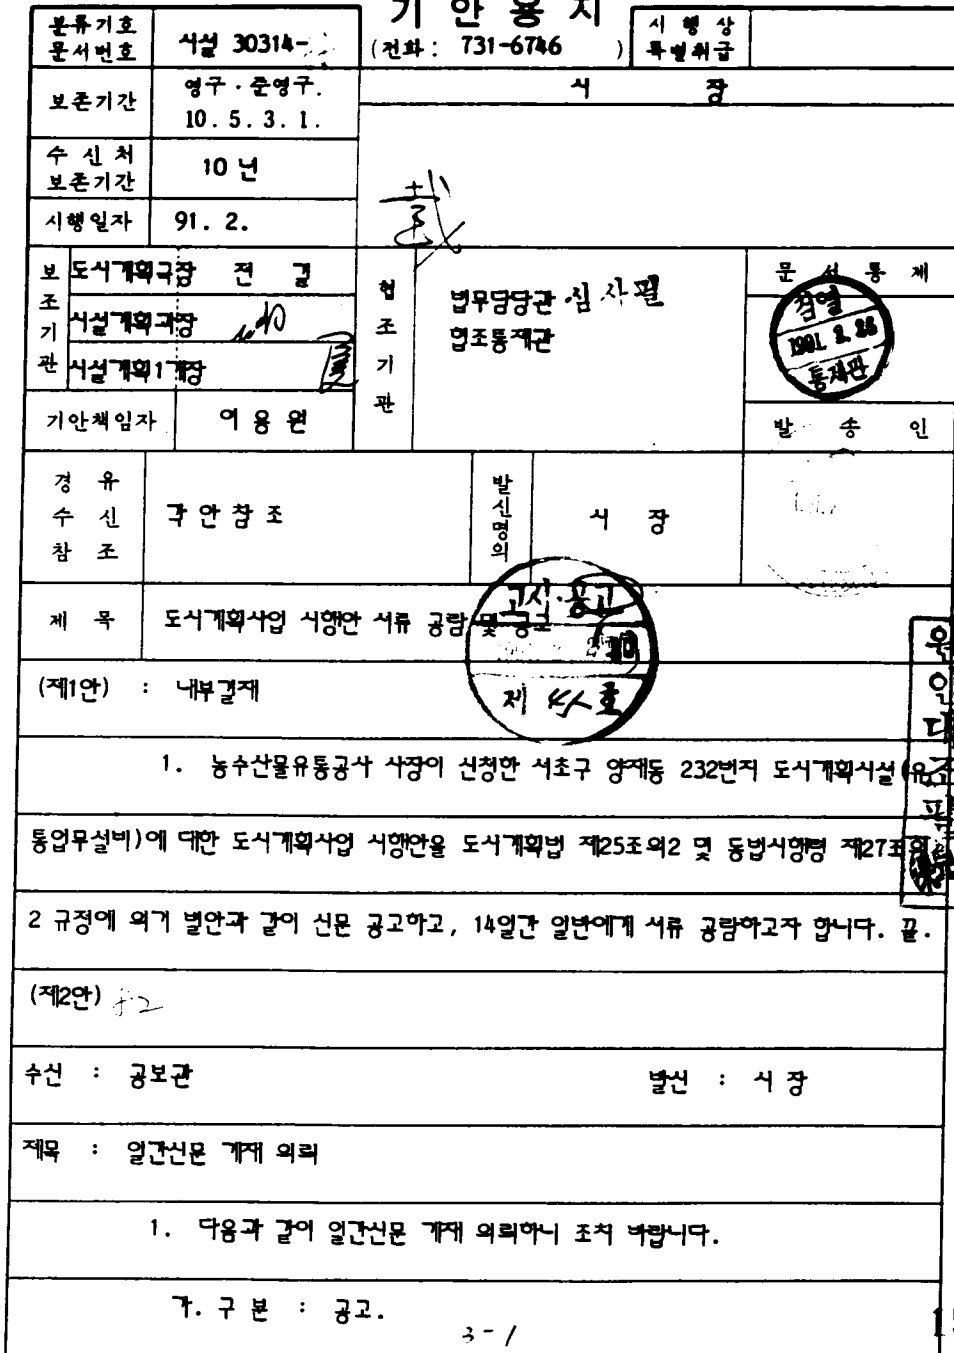 기 안 용 지
분류기호
문서번호
시설 30314-
(전화 : 731-6746 )
시 행 상
특별취급
보존기간
영구 · 준영구.
10. 5. 3. 1.
시 장
수 신 처
보존기간
10 년
시행일자
91. 2.
보조기관
도시계획국장 전 결
시설계획과장
시설계획1계장
협조기관
법무담당관 심사필
협조통제관
문 서 통 제
검열
1991. 2. 28
통제관
기안책임자
여 용 원
발 송 인
경 유
수 신
참 조
각 안 참 조
발신명의
시 장
제 목
도시계획사업 시행안 서류 공람 및 공고
고시·공고
제 호
(제1안) : 내부결재
1. 농수산물유통공사 사장이 신청한 서초구 양재동 232번지 도시계획시설(유
통업무설비)에 대한 도시계획사업 시행안을 도시계획법 제25조의2 및 동법시행령 제27조의
2 규정에 의거 별안과 같이 신문 공고하고, 14일간 일반에게 서류 공람하고자 합니다. 끝.
원본대조필
(제2안)
수신 : 공보관
발신 : 시 장
제목 : 일간신문 게재 의뢰
1. 다음과 같이 일간신문 게재 의뢰하니 조치 바랍니다.
가. 구 분 : 공고.
3-1